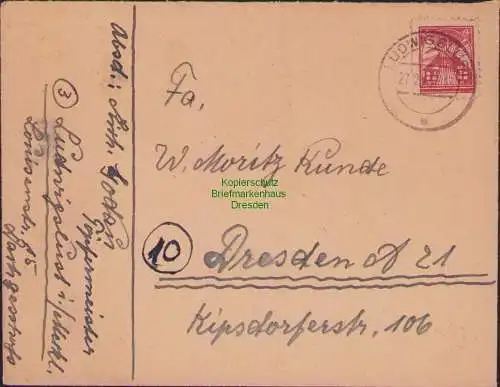 Absd.: Kurt
Töpfermeister
(3) Ludwigslust i/Meckl.
Louisenstr. 15
LUDWIGSLUST
27
Fa,
W. Moritz Kunde
(10) Dresden A 21
Kipsdorferstr. 106
Kopierschutz
Briefmarkenhaus
Dresden